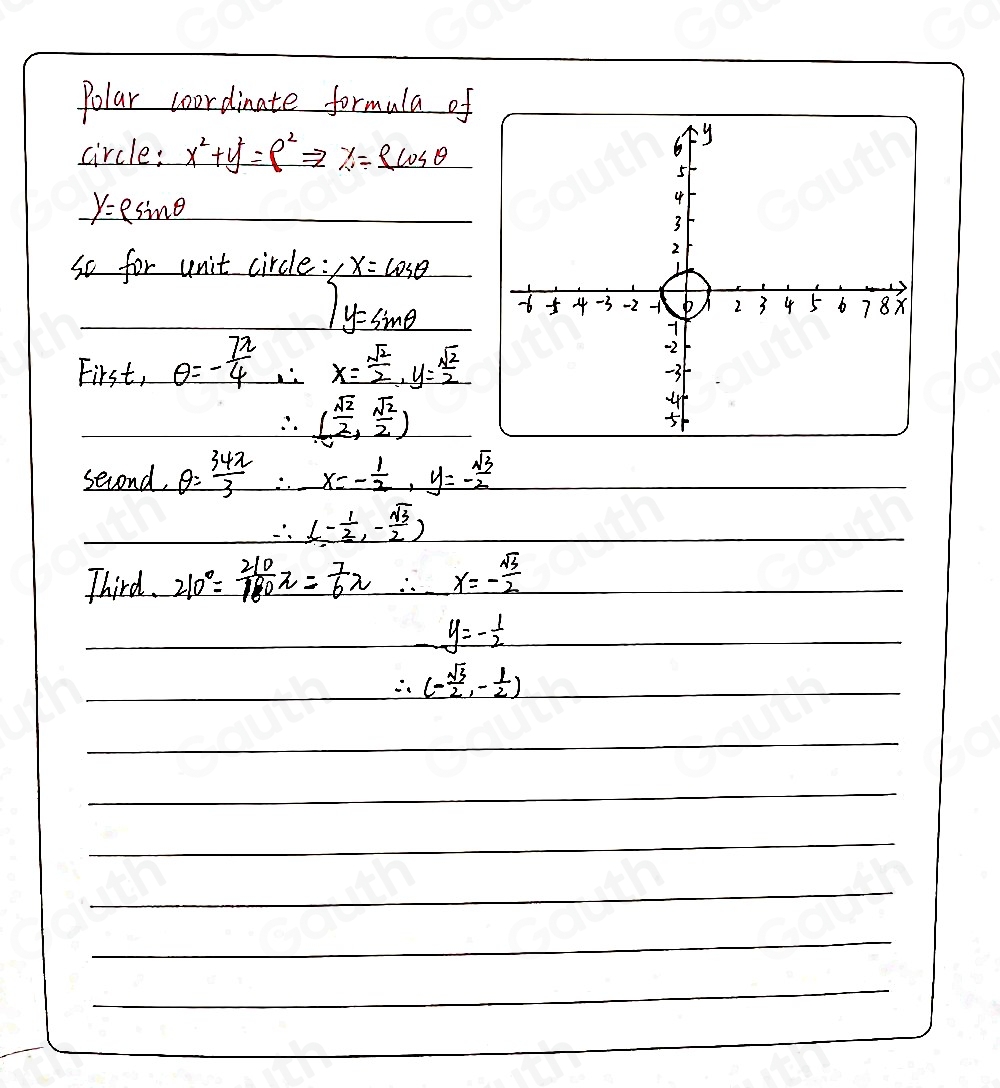 Polar coordinate formula of
circle: x²+y²=ρ² ⇒ x=ρcosθ
y=ρsinθ
so for unit circle: { x=cosθ
y=sinθ
First, θ=-7π/4 ∴ x=√2/2, y=√2/2
∴ (√2/2, √2/2)
second, θ=34π/3 ∴ x=-1/2, y=-√3/2
∴ (-1/2, -√3/2)
Third. 210°=210/180π=7/6π ∴ x=-√3/2
y=-1/2
∴ (-√3/2, -1/2)
y
6
5
4
3
2
1
-6 -5 -4 -3 -2 -1 0 1 2 3 4 5 6 7 8 x
-1
-2
-3
-4
-5
Gauth